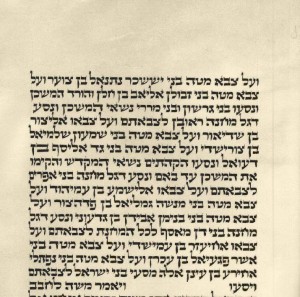 ועל צבא מטה בני יששכר נתנאל בן צוער ועל
צבא מטה בני זבולן אליאב בן חלן והורד המשכן
ונסעו בני גרשון ובני מררי נשאי המשכן ונסע
דגל מחנה ראובן לצבאתם ועל צבאו אליצור
בן שדיאור ועל צבא מטה בני שמעון שלמיאל
בן צורישדי ועל צבא מטה בני גד אליסף בן
דעואל ונסעו הקהתים נשאי המקדש והקימו
את המשכן עד באם ונסע דגל מחנה בני אפרים
לצבאתם ועל צבאו אלישמע בן עמיהוד ועל
צבא מטה בני מנשה גמליאל בן פדהצור ועל
צבא מטה בני בנימן אבידן בן גדעוני ונסע דגל
מחנה בני דן מאסף לכל המחנת לצבאתם ועל
צבאו אחיעזר בן עמישדי ועל צבא מטה בני
אשר פגעיאל בן עכרן ועל צבא מטה בני נפתלי
אחירע בן עינן אלה מסעי בני ישראל לצבאתם
ויסעו ויאמר משה לחבב